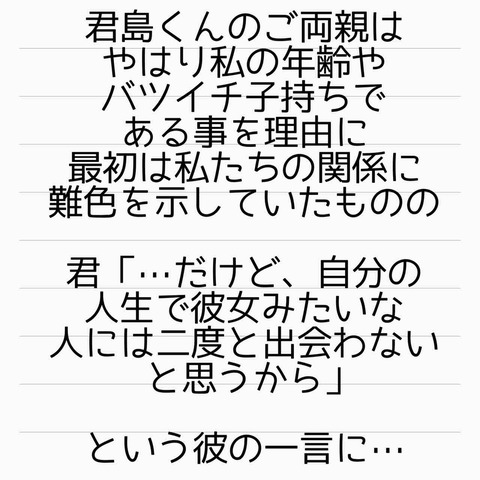 君島くんのご両親は
やはり私の年齢や
バツイチ子持ちで
ある事を理由に
最初は私たちの関係に
難色を示していたものの
君「…だけど、自分の
人生で彼女みたいな
人には二度と出会わない
と思うから」
という彼の一言に…